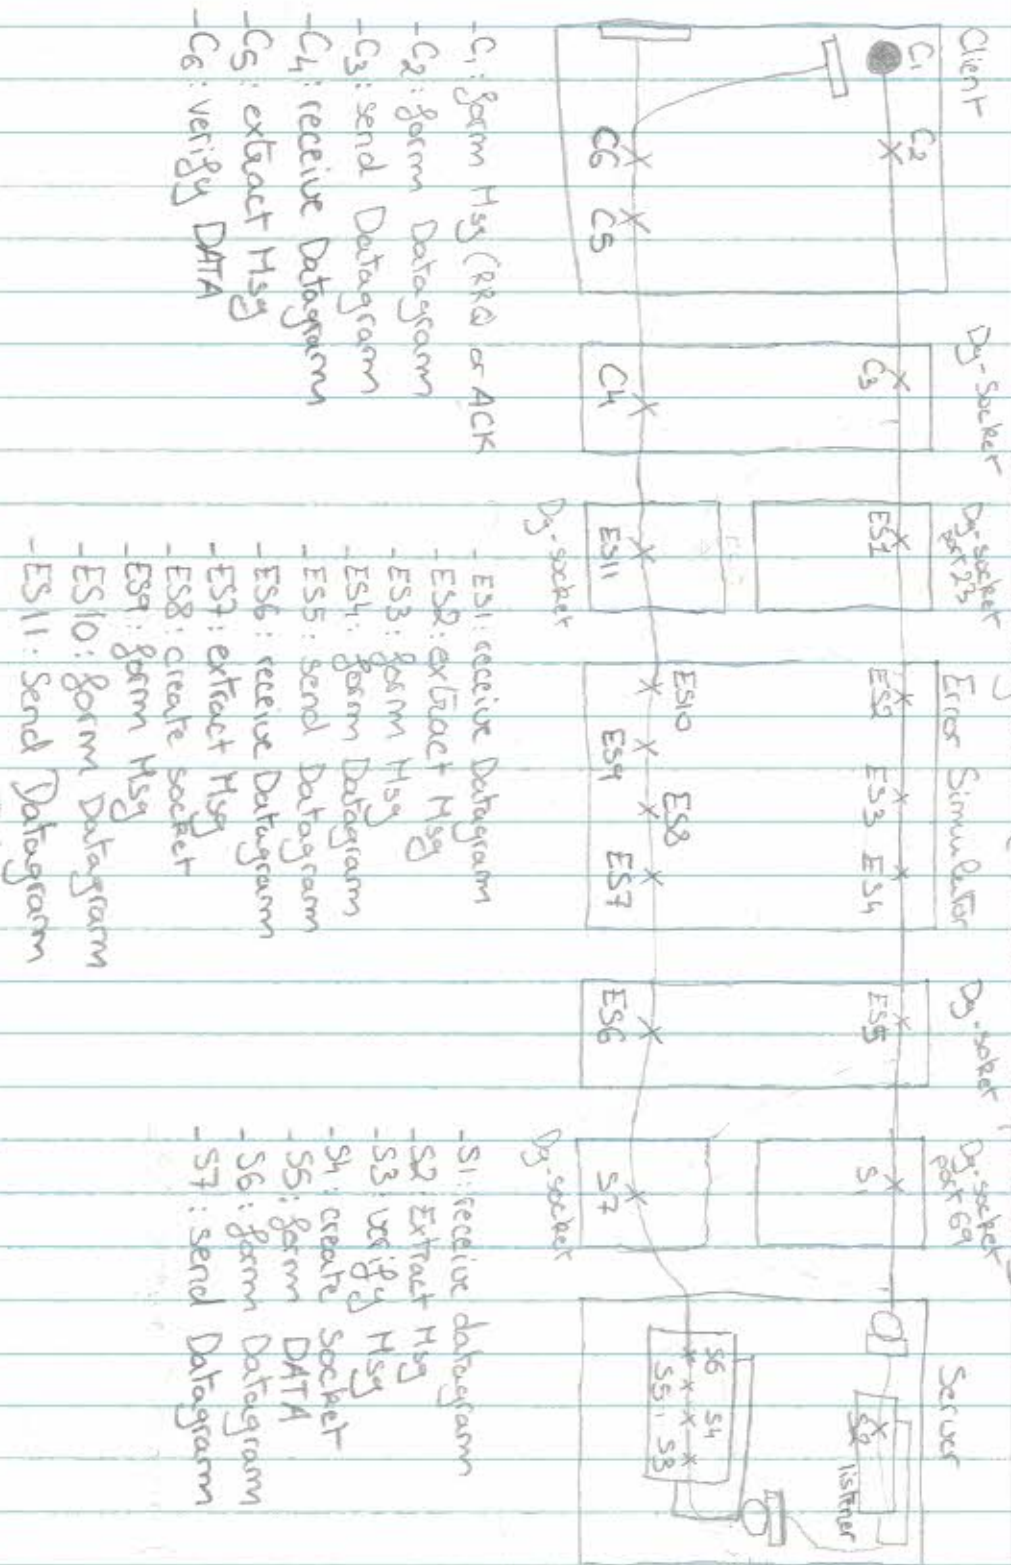 Client
Dg-Socket
Dg-socket
port 23
Error Simulator
Dg-soket
Dg-socket
port 69
Server
C1
C2
C3
ES1
ES2
ES3
ES4
ES5
S1
S2
listener
C6
C5
C4
ES11
ES10
ES9
ES8
ES7
ES6
S7
S6
S5
S4
S3
Dg-socket
Dg-socket
-C1: form Msg (RRQ or ACK
-C2: form Datagram
-C3: send Datagram
-C4: receive Datagram
-C5: extract Msg
-C6: verify DATA
-ES1: receive Datagram
-ES2: extract Msg
-ES3: form Msg
-ES4: form Datagram
-ES5: send Datagram
-ES6: receive Datagram
-ES7: extract Msg
-ES8: create socket
-ES9: form Msg
-ES10: form Datagram
-ES11: Send Datagram
-S1: receive datagram
-S2: Extract Msg
-S3: verify Msg
-S4: create Socket
-S5: form DATA
-S6: form Datagram
-S7: send Datagram